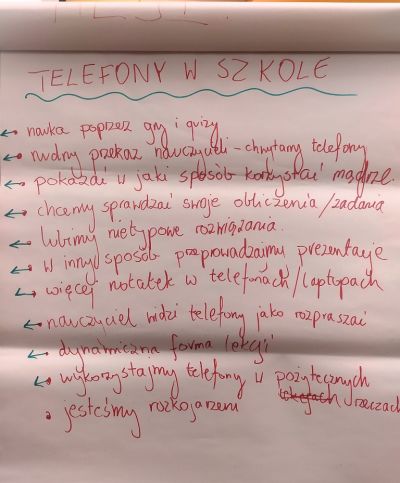 TELEFONY W SZKOLE
nauka poprzez gry i quizy
nudny przekaz nauczycieli - chwytamy telefony
pokazać w jaki sposób korzystać mądrze.
chcemy sprawdzać swoje obliczenia/zadania
lubimy nietypowe rozwiązania.
w inny sposób przeprowadzajmy prezentacje
więcej notatek w telefonach/laptopach
nauczyciel widzi telefony jako rozpraszać
dynamiczna forma lekcji
wykorzystajmy telefony w pożytecznych
rzeczach
jesteśmy rozkojarzeni